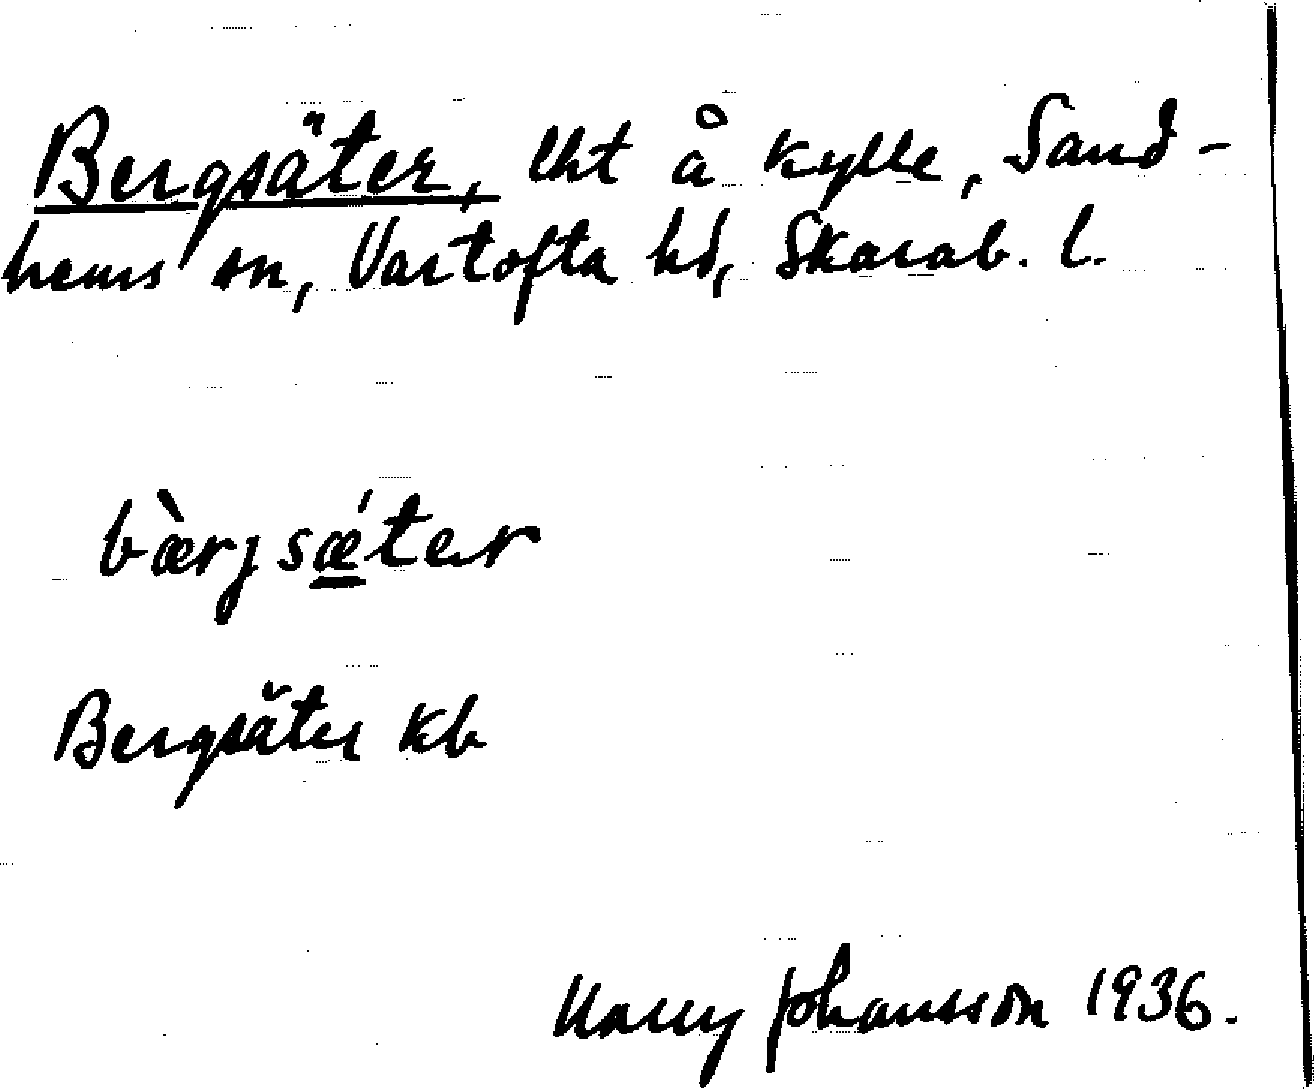 Bergsäter, lht å Kylle, Sand-
hems sn, Vartofta hd, Skarab. l.
bæ̀rjsǽ̱ter
Bergsäter kb
Harry Johansson 1936.